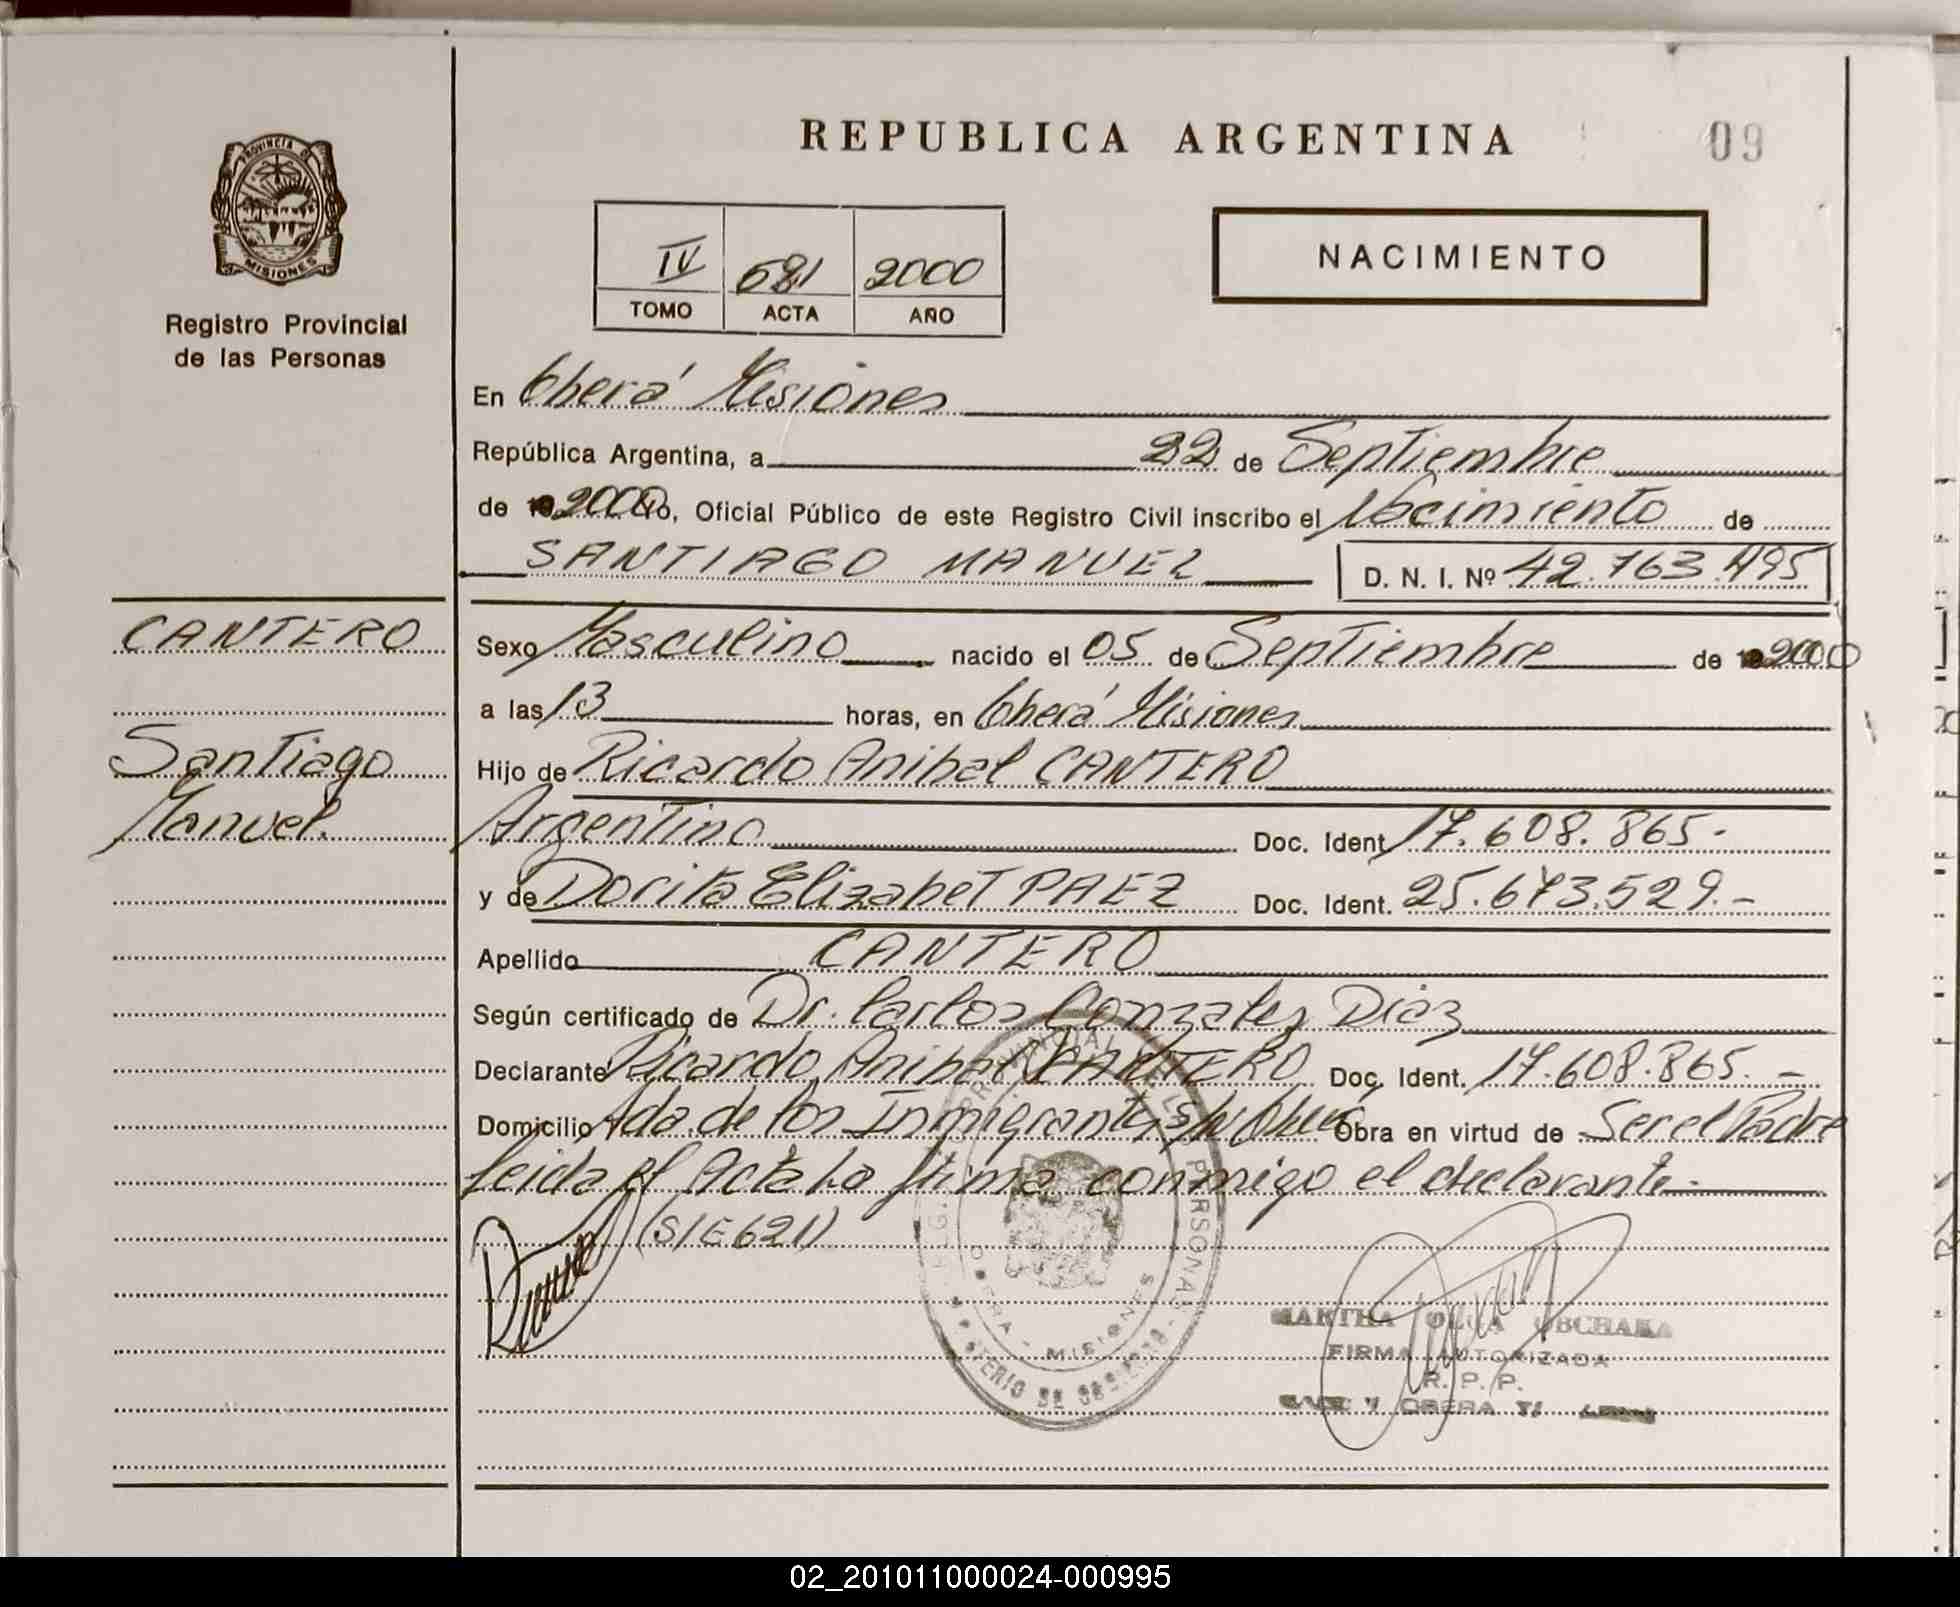 REPUBLICA ARGENTINA
09
PROVINCIA DE
MISIONES
Registro Provincial
de las Personas
IV 621 2000
TOMO ACTA AÑO
NACIMIENTO
En Oberá Misiones
República Argentina, a 22 de Septiembre
de 2000 Yo, Oficial Público de este Registro Civil inscribo el Nacimiento de
SANTIAGO MANUEL D. N. I. Nº 42.763.495
CANTERO
Santiago
Manuel.
Sexo Masculino nacido el 05 de Septiembre de 2000
a las 13 horas, en Oberá Misiones
Hijo de Ricardo Anibal CANTERO
Argentino Doc. Ident 17.608.865.-
y de Dorita Elizabet PAEZ Doc. Ident. 25.673.529.-
Apellido CANTERO
Según certificado de Dr. Carlos Gonzalez Diaz
Declarante Ricardo Anibal CANTERO Doc. Ident. 17.608.865.-
Domicilio Avda. de los Inmigrantes s/n Oberá Obra en virtud de Ser el Padre
Leida el Acta la firma conmigo el declarante.-
(S/E 621)
PROVINCIAL DE LAS PERSONAS
OBERA - MISIONES
MINISTERIO DE GOBIERNO
MARTHA OLGA
FIRMA AUTORIZADA
R. P. P.
OBERA
02_201011000024-000995